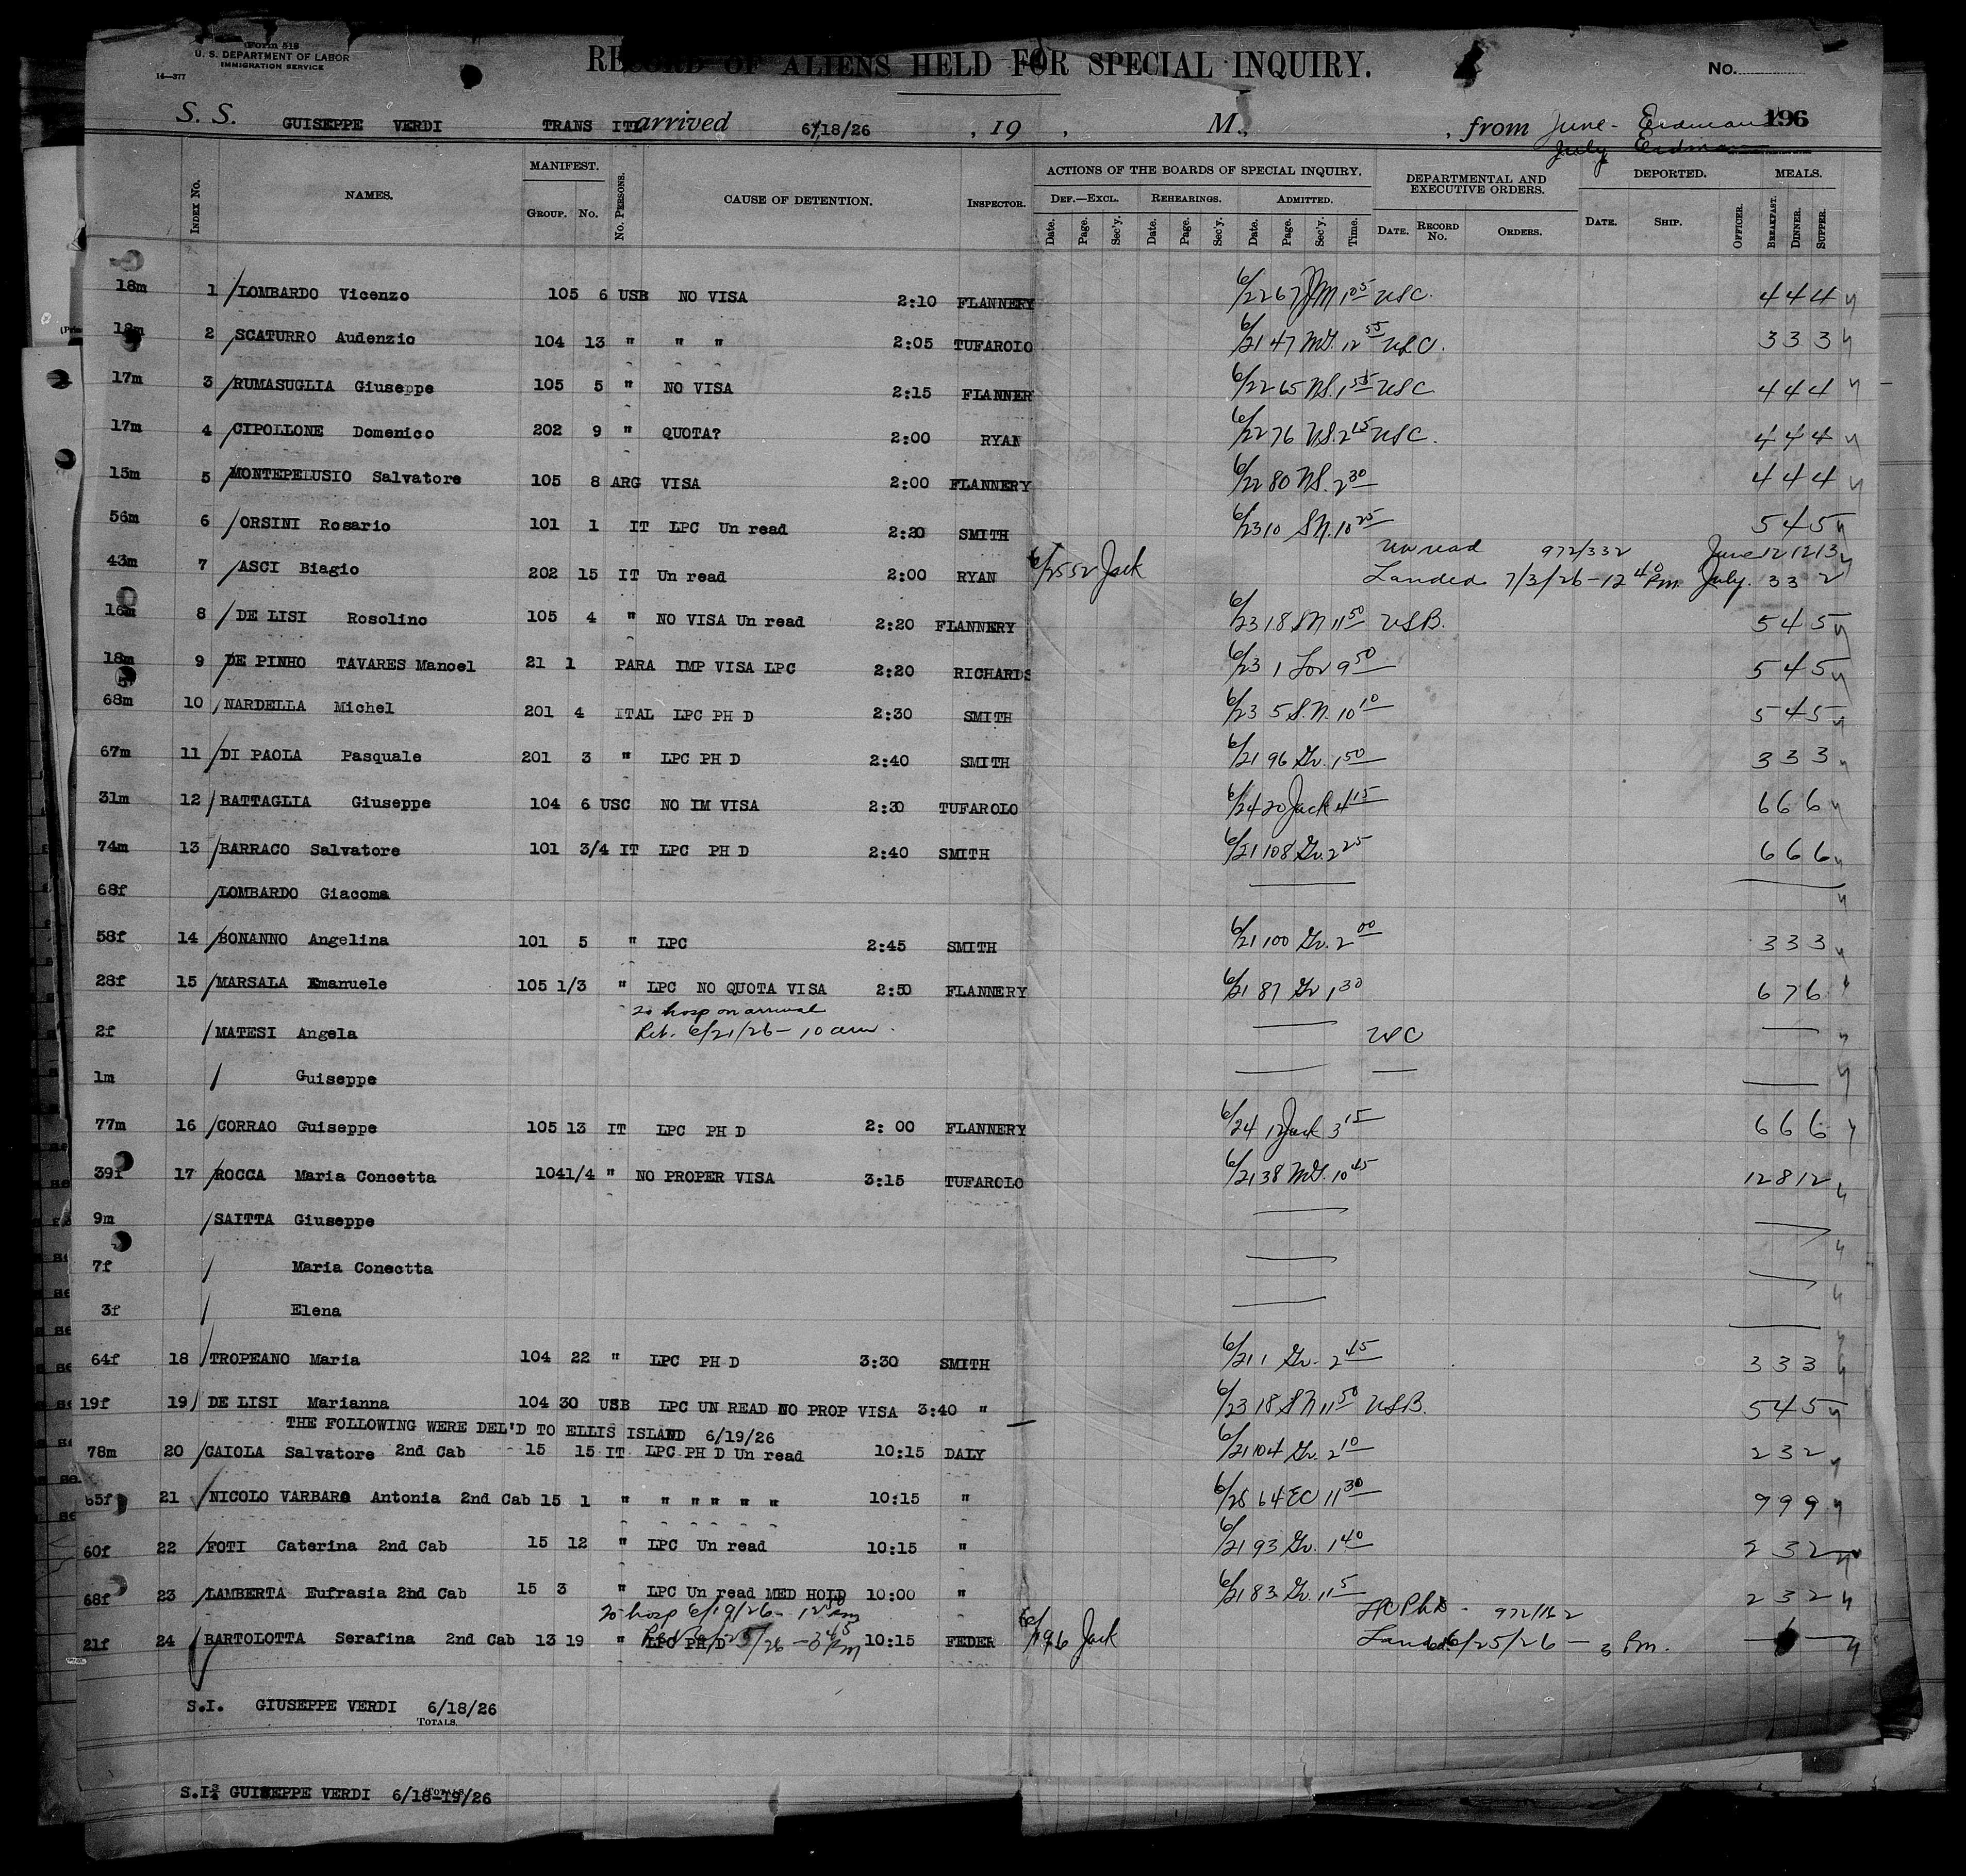 Form 518
U. S. DEPARTMENT OF LABOR
IMMIGRATION SERVICE
14—377
RECORD OF ALIENS HELD FOR SPECIAL INQUIRY.
No.
196
S. S. GUISEPPE VERDI TRANS ITL arrived 6/18/26 , 19 , M., , from June - Erdman
July Erdman
INDEX No. NAMES. MANIFEST. GROUP. No. No. PERSONS. CAUSE OF DETENTION. INSPECTOR. ACTIONS OF THE BOARDS OF SPECIAL INQUIRY. DEF.—EXCL. Date. Page. Sec'y. REHEARINGS. Date. Page. Sec'y. ADMITTED. Date. Page. Sec'y. Time. DEPARTMENTAL AND EXECUTIVE ORDERS. DATE. RECORD No. ORDERS. DEPORTED. DATE. SHIP. OFFICER. MEALS. BREAKFAST. DINNER. SUPPER.
18m 1 LOMBARDO Vicenzo 105 6 USB NO VISA 2:10 FLANNERY 6/22 67 JM 1 05 USC. 4 4 4
18m 2 SCATURRO Audenzio 104 13 " " " 2:05 TUFAROLO 6/21 47 MG. 12 55 USC. 3 3 3
17m 3 RUMASUGLIA Giuseppe 105 5 " NO VISA 2:15 FLANNER 6/22 65 NS. 1 55 USC 4 4 4
17m 4 CIPOLLONE Domenico 202 9 " QUOTA? 2:00 RYAN 6/22 76 NS. 2 15 USC. 4 4 4
15m 5 MONTEPELUSIO Salvatore 105 8 ARG VISA 2:00 FLANNERY 6/22 80 NS. 2 30 4 4 4
56m 6 ORSINI Rosario 101 1 IT LPC Un read 2:20 SMITH 6/23 10 SN. 10 25 5 4 5
43m 7 ASCI Biagio 202 15 IT Un read 2:00 RYAN 6/25 52 Jack Un read 972/332 June 12 12 13
Landed 7/3/26 - 12 40 Pm. July. 3 3 2
16m 8 DE LISI Rosolino 105 4 " NO VISA Un read 2:20 FLANNERY 6/23 18 SN 11 50 USB. 5 4 5
18m 9 DE PINHO TAVARES Manoel 21 1 PARA IMP VISA LPC 2:20 RICHARDS 6/23 1 9 50 5 4 5
68m 10 NARDELLA Michel 201 4 ITAL LPC PH D 2:30 SMITH 6/23 5 S.N. 10 10 5 4 5
67m 11 DI PAOLA Pasquale 201 3 " LPC PH D 2:40 SMITH 6/21 96 Gr. 1 50 3 3 3
31m 12 BATTAGLIA Giuseppe 104 6 USC NO IM VISA 2:30 TUFAROLO 6/24 20 Jack 4 15 6 6 6
74m 13 BARRACO Salvatore 101 3/4 IT LPC PH D 2:40 SMITH 6/21 108 Gr. 2 25 6 6 6
68f LOMBARDO Giacoma
58f 14 BONANNO Angelina 101 5 " LPC 2:45 SMITH 6/21 100 Gr. 2 00 3 3 3
28f 15 MARSALA Emanuele 105 1/3 " LPC NO QUOTA VISA 2:50 FLANNERY 6/21 87 Gr 1 30 6 7 6
To hosp on arrival
2f MATESI Angela Ret. 6/21/26 - 10 am. USC
1m Guiseppe
77m 16 CORRAO Guiseppe 105 13 IT LPC PH D 2: 00 FLANNERY 6/24 12 Jack 3 15 6 6 6
39f 17 ROCCA Maria Concetta 104 1/4 " NO PROPER VISA 3:15 TUFAROLO 6/21 38 MG. 10 45 12 8 12
9m SAITTA Giuseppe
7f Maria Conectta
3f Elena
64f 18 TROPEANO Maria 104 22 " LPC PH D 3:30 SMITH 6/21 1 Gr. 2 45 3 3 3
19f 19 DE LISI Marianna 104 30 USB LPC UN READ NO PROP VISA 3:40 " 6/23 18 SN 11 50 USB. 5 4 5
THE FOLLOWING WERE DEL'D TO ELLIS ISLAND 6/19/26
78m 20 CAIOLA Salvatore 2nd Cab 15 15 IT LPC PH D Un read 10:15 DALY 6/21 104 Gr. 2 10 2 3 2
65f 21 NICOLO VARBARO Antonia 2nd Cab 15 1 " " " " " " 10:15 " 6/25 64 EC 11 30 9 9 9
60f 22 FOTI Caterina 2nd Cab 15 12 " LPC Un read 10:15 " 6/21 93 Gr. 1 40 2 3 2
68f 23 LAMBERTA Eufrasia 2nd Cab 15 3 " LPC Un read MED HOLD 10:00 " 6/21 83 Gr. 11 5 2 3 2
To hosp 6/19/26 - 12 30 pm LPC PhD - 972/162
21f 24 BARTOLOTTA Serafina 2nd Cab 13 19 " LPC PH D 10:15 FEDER 6/19 6 Jack Landed 6/25/26 - 3 Pm.
S.I. GIUSEPPE VERDI 6/18/26
TOTALS.
S.I. GUISEPPE VERDI 6/18-19/26
TOTALS.